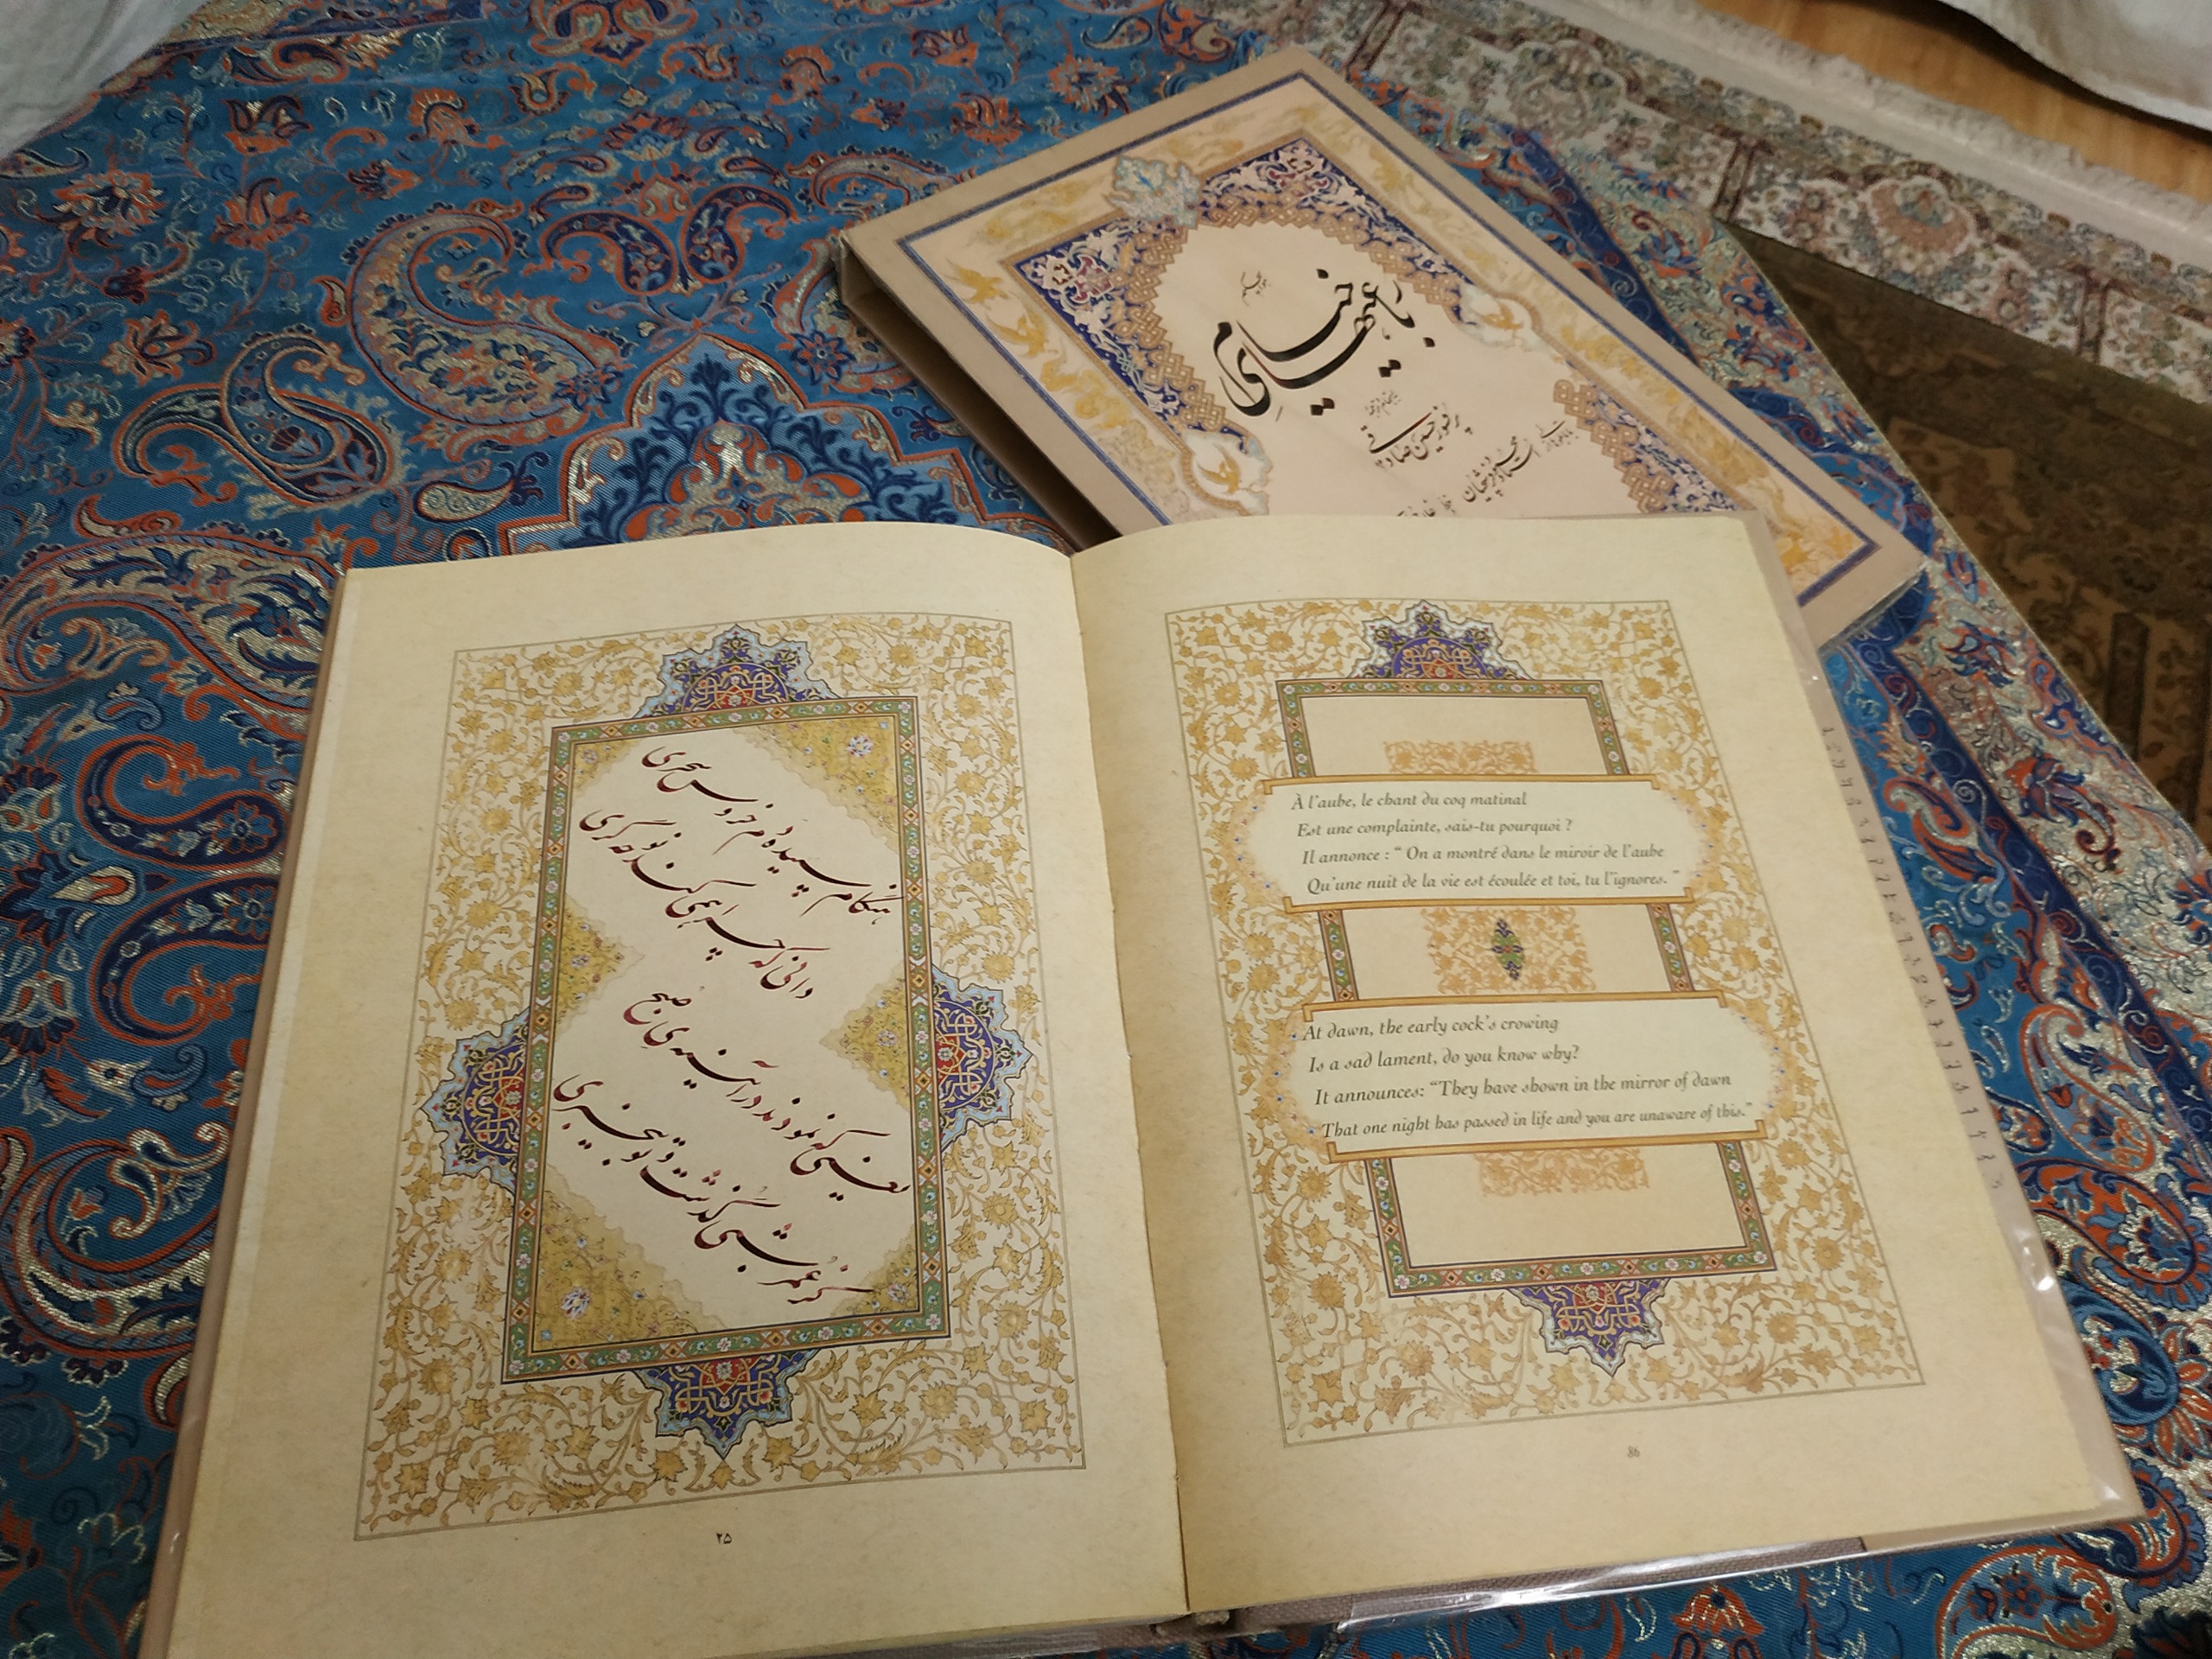 رباعیهای خیام
پرفسور حسین صادقی
هنگام سپیده دم خروس سحری
دانی که چرا همی کند نوحه گری
یعنی که نمودند در آیینه ی صبح
کز عمر شبی گذشت و تو بیخبری
۲۵
À l'aube, le chant du coq matinal
Est une complainte, sais-tu pourquoi ?
Il annonce : “ On a montré dans le miroir de l'aube
Qu'une nuit de la vie est écoulée et toi, tu l'ignores. ”
At dawn, the early cock's crowing
Is a sad lament, do you know why?
It announces: “They have shown in the mirror of dawn
That one night has passed in life and you are unaware of this.”
86